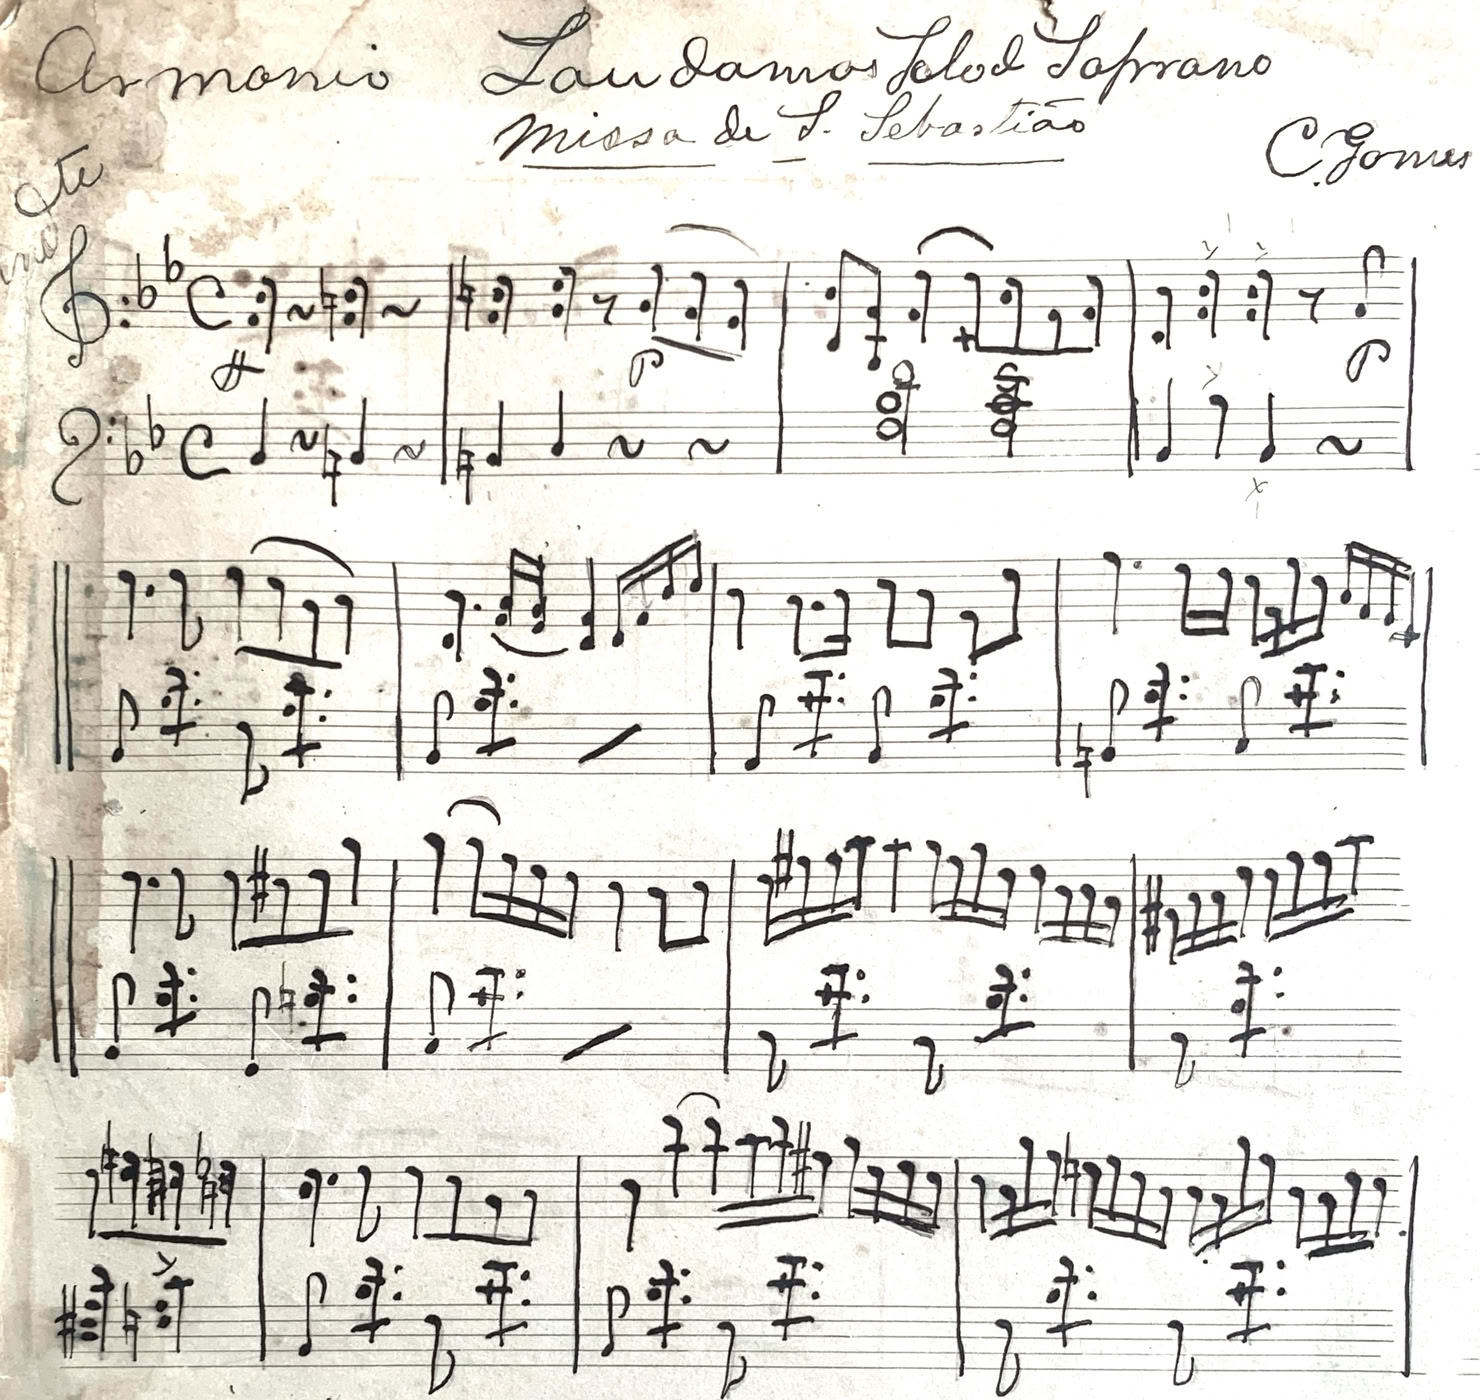 Armonio Laudamos Solo d Soprano
Missa de S. Sebastião
C. Gomes